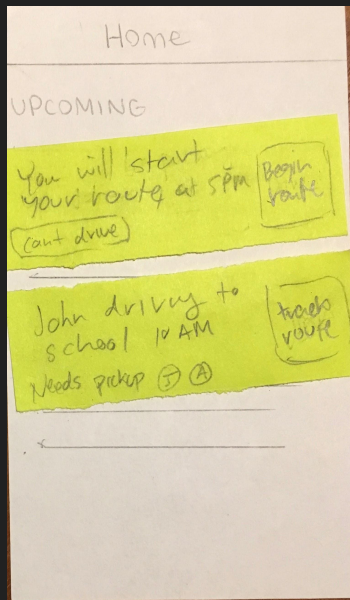 Home
UPCOMING
You will start
your route at 5PM
Begin
route
can't drive
John driving to
school 10 AM
track
route
Needs pickup J A